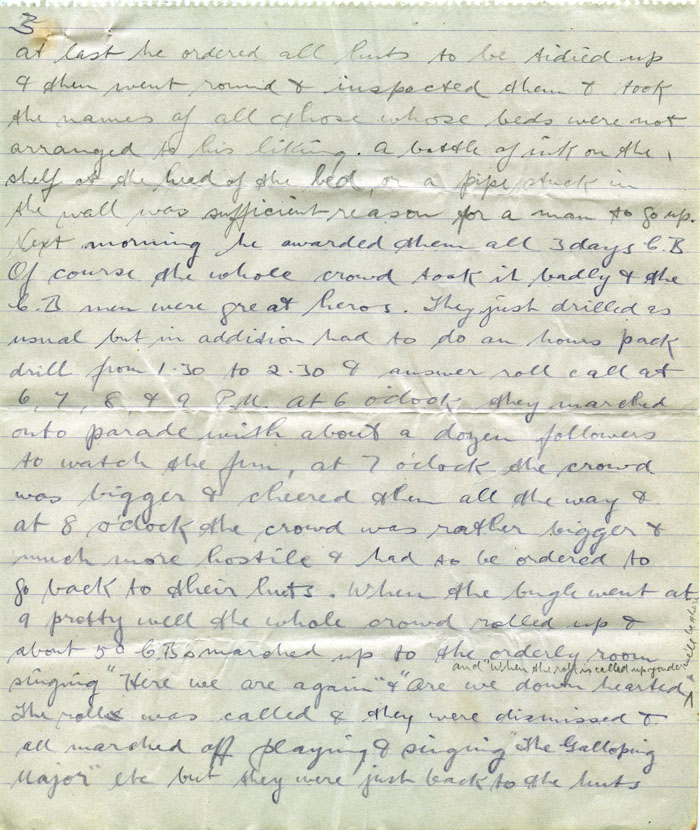 3
at last he ordered all huts to be tidied up
& then went round & inspected them & took
the names of all those whose beds were not
arranged to his liking. A bottle of ink on the
shelf at the head of the bed, or a pipe stuck in
the wall was sufficient reason for a man to go up.
Next morning he awarded them all 3 days C.B
Of course the whole crowd took it badly & the
C.B men were great heros. They just drilled as
usual but in addision had to do an hours pack
drill from 1.30 to 2.30 & answer roll call at
6, 7, 8, & 9 P.M. at 6 o'clock they marched
onto parade with about a dozen followers
to watch the fun, at 7 o'clock the crowd
was bigger & cheered them all the way &
at 8 o'clock the crowd was rather bigger &
much more hostile & had to be ordered to
go back to their huts. When the bugle went at
9 pretty well the whole crowd rolled up &
about 50 C.Bs marched up to the orderly room
and "When the roll is called up yonder
singing "Here we are again" & "Are we down hearted
The rolls was called & they were dismissed &
all marched off playing & singing "The Galloping
Major" etc but they were just back to the huts